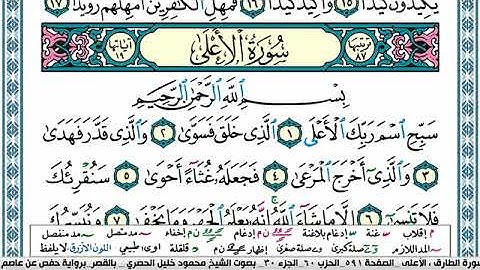 يَكِيدُونَ كَيْدًا ١٥ وَأَكِيدُ كَيْدًا ١٦ فَمَهِّلِ الْكَافِرِينَ أَمْهِلْهُمْ رُوَيْدًا ١٧
ترتيبها ٨٧ سُورَةُ الْأَعْلَى آياتها ١٩
بِسْمِ اللَّهِ الرَّحْمَٰنِ الرَّحِيمِ
سَبِّحِ اسْمَ رَبِّكَ الْأَعْلَى ١ الَّذِي خَلَقَ فَسَوَّىٰ ٢ وَالَّذِي قَدَّرَ فَهَدَىٰ
٣ وَالَّذِي أَخْرَجَ الْمَرْعَىٰ ٤ فَجَعَلَهُ غُثَاءً أَحْوَىٰ ٥ سَنُقْرِئُكَ
فَلَا تَنسَىٰ ٦ إِلَّا مَا شَاءَ اللَّهُ إِنَّهُ يَعْلَمُ الْجَهْرَ وَمَا يَخْفَىٰ ٧ وَنُيَسِّرُكَ
م إقلاب غنة إدغام بلاغنة إخفاء مد متصل مد منفصل
المد اللازم صلة كبرى صلة صغرى إظهار قلقلة مد طبيعي اللون الأزرق لا يلفظ
سورة الطارق ، الأعلى . الصفحة ٥٩١ الحزب ٦٠ الجزء ٣٠ _ بصوت الشيخ محمود خليل الحصري _ بالقصر_ برواية حفص عن عاصم